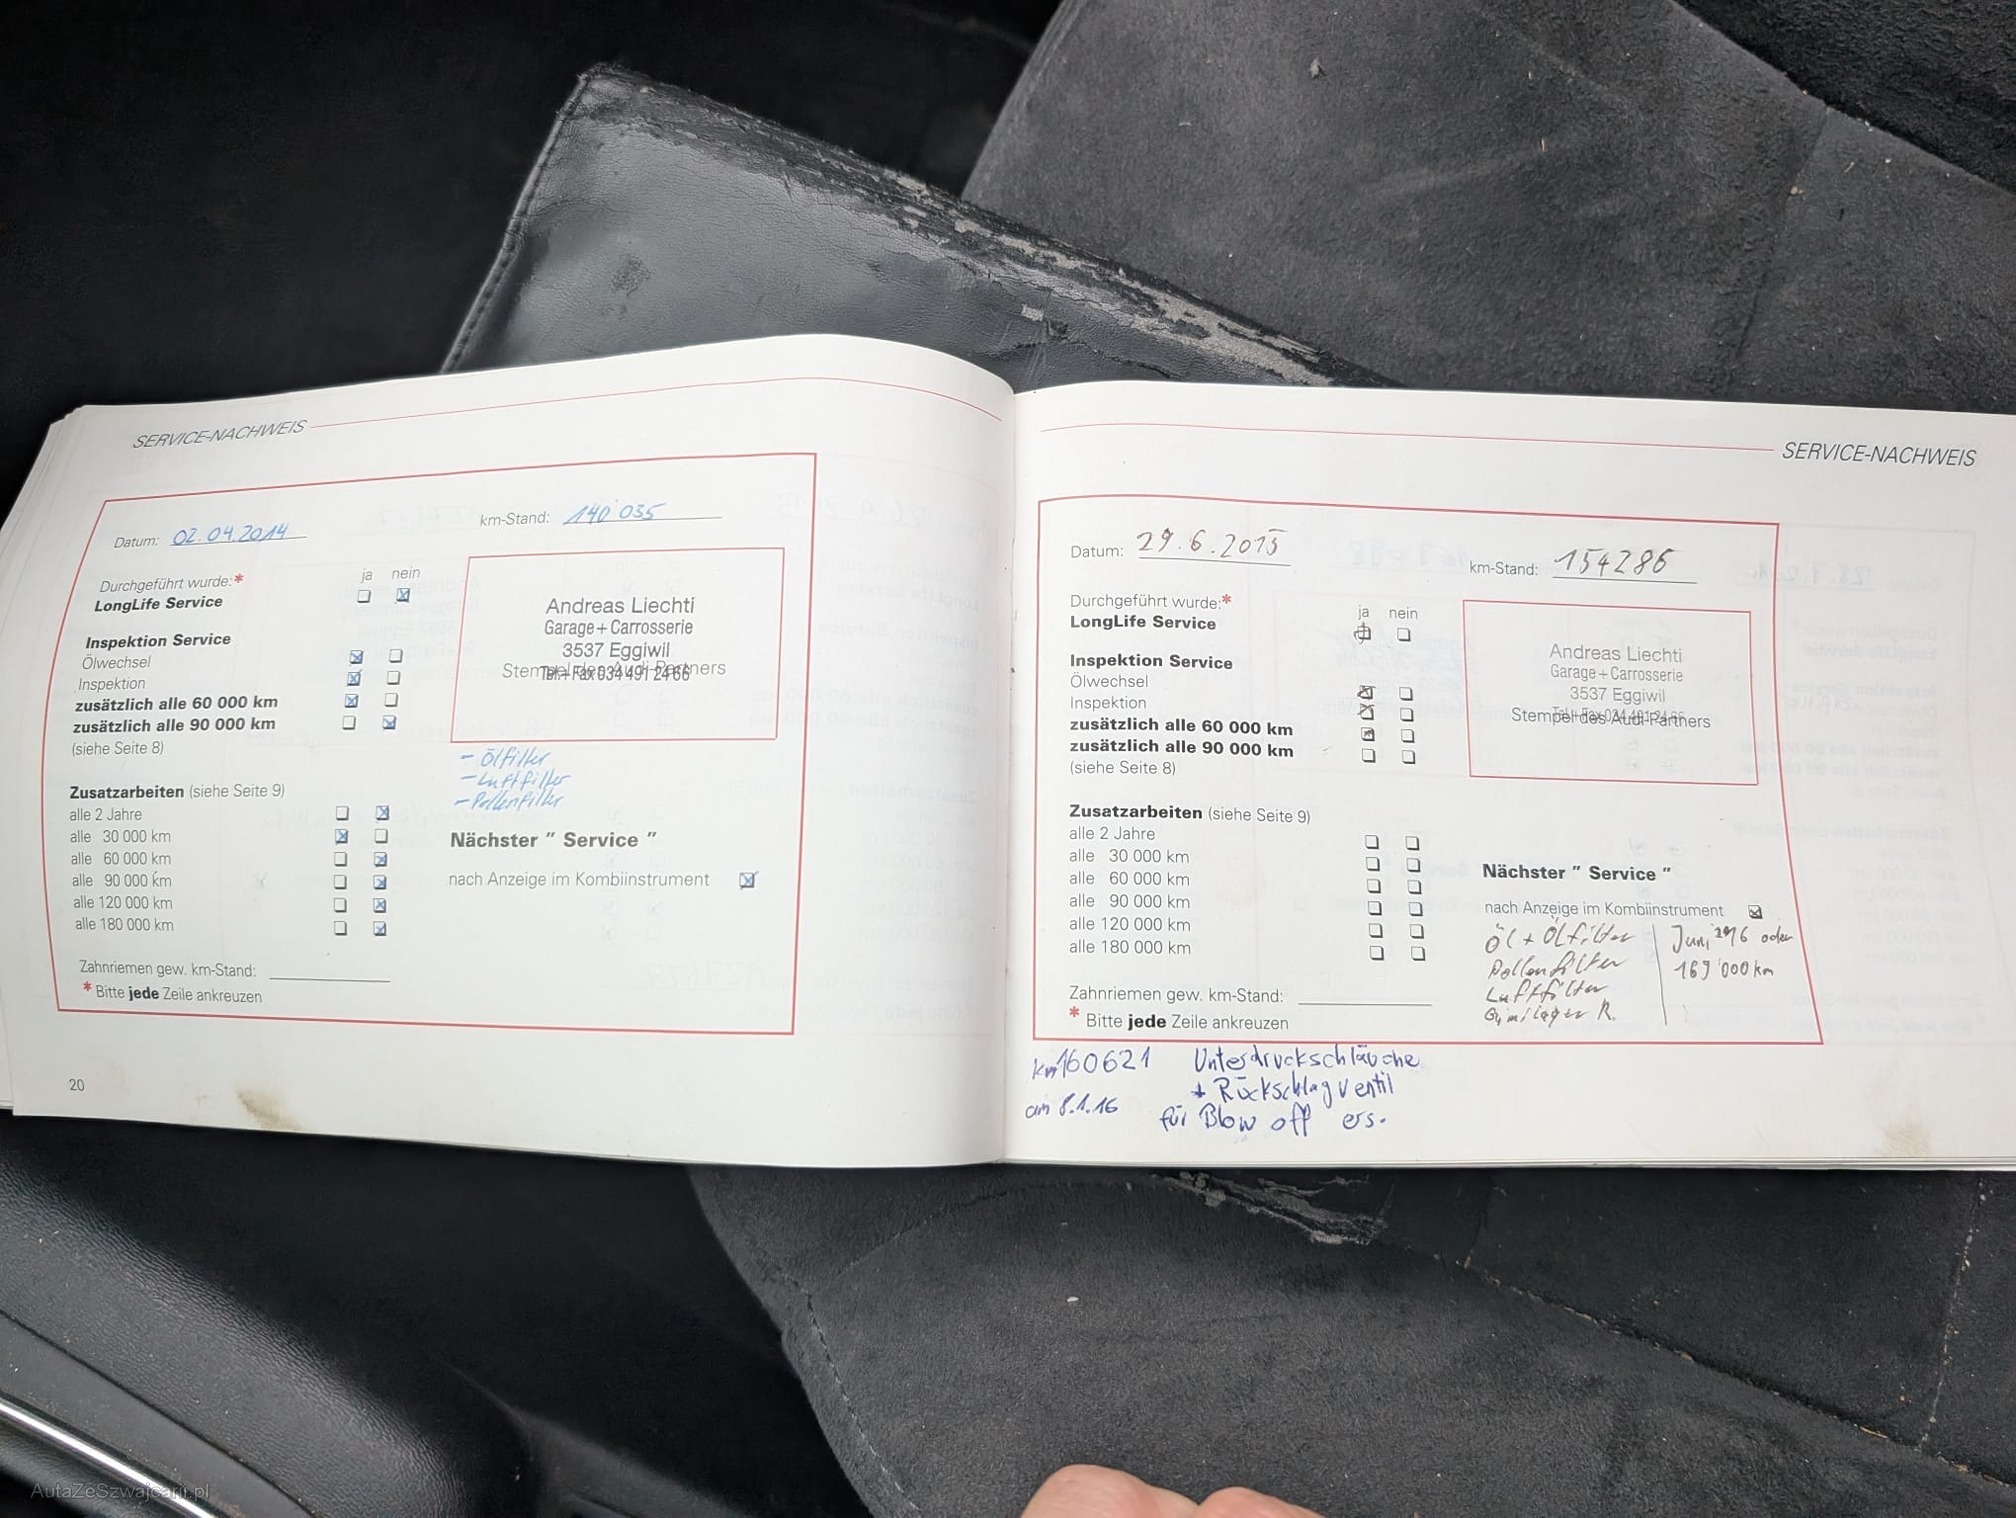 SERVICE-NACHWEIS
Datum: 02.04.2014
km-Stand: 140'035
Durchgeführt wurde:* ja nein
LongLife Service
Inspektion Service
Ölwechsel
Inspektion
zusätzlich alle 60 000 km
zusätzlich alle 90 000 km
(siehe Seite 8)
Andreas Liechti
Garage+Carrosserie
3537 Eggiwil
Stempel des Audi-Partners
Tel.+Fax 034 491 24 66
- Ölfilter
- Luftfilter
- Pollenfilter
Zusatzarbeiten (siehe Seite 9)
alle 2 Jahre
alle 30 000 km
alle 60 000 km
alle 90 000 km
alle 120 000 km
alle 180 000 km
Nächster " Service "
nach Anzeige im Kombiinstrument
Zahnriemen gew. km-Stand:
* Bitte jede Zeile ankreuzen
20
SERVICE-NACHWEIS
Datum: 29.6.2015
km-Stand: 154286
Durchgeführt wurde:* ja nein
LongLife Service
Inspektion Service
Ölwechsel
Inspektion
zusätzlich alle 60 000 km
zusätzlich alle 90 000 km
(siehe Seite 8)
Andreas Liechti
Garage+Carrosserie
3537 Eggiwil
Stempel des Audi-Partners
Tel.+Fax 034 491 24 66
Zusatzarbeiten (siehe Seite 9)
alle 2 Jahre
alle 30 000 km
alle 60 000 km
alle 90 000 km
alle 120 000 km
alle 180 000 km
Nächster " Service "
nach Anzeige im Kombiinstrument
Öl + Ölfilter
Pollenfilter
Luftfilter
R.
Juni 2016 oder
169'000 km
Zahnriemen gew. km-Stand:
* Bitte jede Zeile ankreuzen
km 160621 Unterdruckschläuche
+ Rückschlagventil
am 8.1.16 für Blow off ers.
AutaZeSzwajcarii.pl